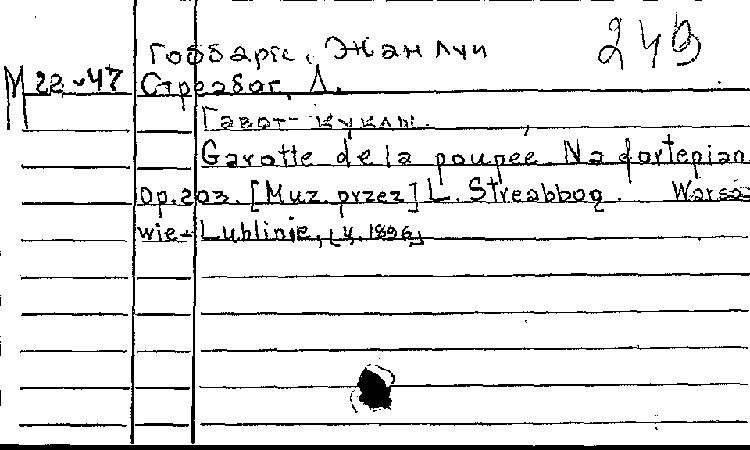 249
Гоббартс, Жан Луи
М 22-47 Стреабог, Л.
Гавот куклы.
Gavotte de la poupee. Na fortepian
Op. 203. [Muz. przez] L. Streabbog. Warsza-
wie-Lublinie, [ц. 1896]